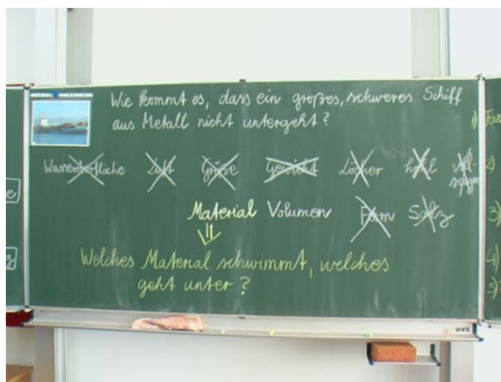 Wie kommt es, dass ein großes, schweres Schiff
aus Metall nicht untergeht?
Wasseroberfläche Luft Größe Gewicht Löcher hohl
Material Volumen Form Salz
Welches Material schwimmt, welches
geht unter?
3)
4)